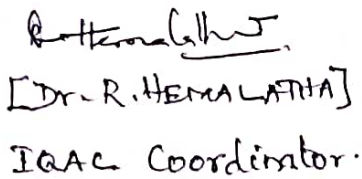 [Dr. R. HEMALATHA]
IQAC Coordinator.